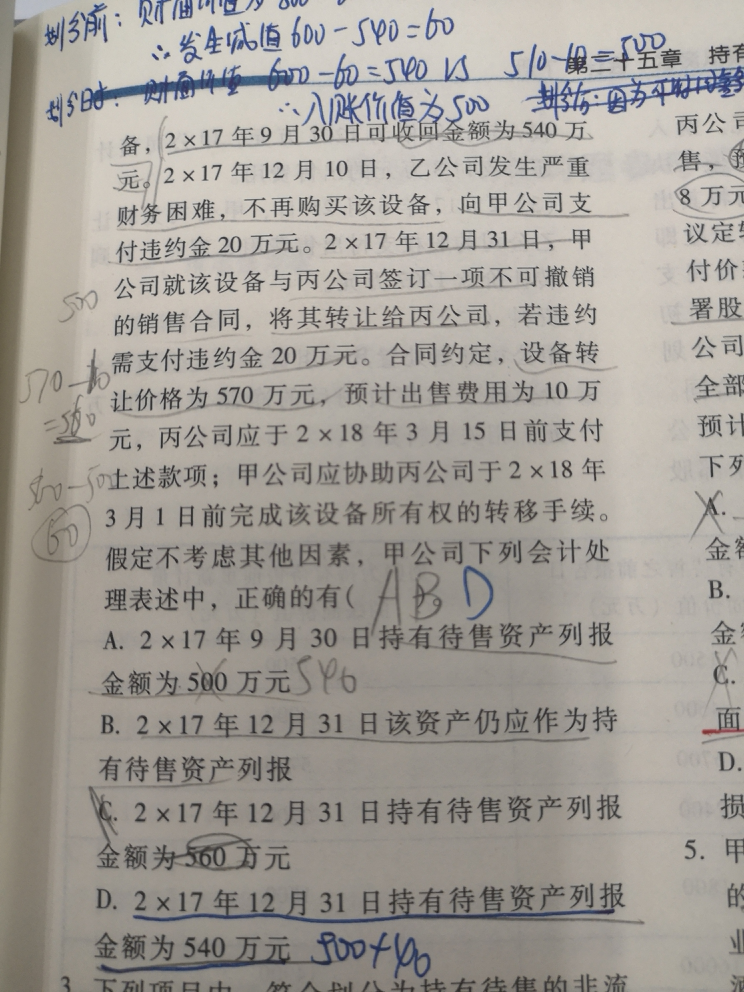 划分前：账面价值为
∴发生减值600-540=60
第二十五章 持有
划分日时：账面价值 600-60=540 VS 510-10=500
∴入账价值为500
备，2×17年9月30日可收回金额为540万
元。2×17年12月10日，乙公司发生严重
财务困难，不再购买该设备，向甲公司支
付违约金20万元。2×17年12月31日，甲
公司就该设备与丙公司签订一项不可撤销
500
的销售合同，将其转让给丙公司，若违约
需支付违约金20万元。合同约定，设备转
570-10
让价格为570万元，预计出售费用为10万
=560
元，丙公司应于2×18年3月15日前支付
上述款项；甲公司应协助丙公司于2×18年
60
3月1日前完成该设备所有权的转移手续。
假定不考虑其他因素，甲公司下列会计处
理表述中，正确的有( ABD
A. 2×17年9月30日持有待售资产列报
金额为500万元 540
B. 2×17年12月31日该资产仍应作为持
有待售资产列报
C. 2×17年12月31日持有待售资产列报
金额为560万元
D. 2×17年12月31日持有待售资产列报
金额为540万元 500+40
3. 下列项目中，符合划分为持有待售的非流
丙公司
售，
8万元
议定
付价
署股
公司
全部
预计
下列
A.
金额
B.
金
C.
面
D.
损
5. 甲
的
业